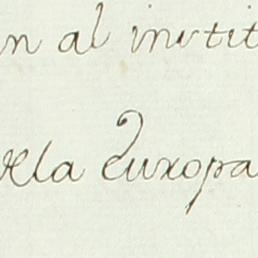 n al instit
ella Europa